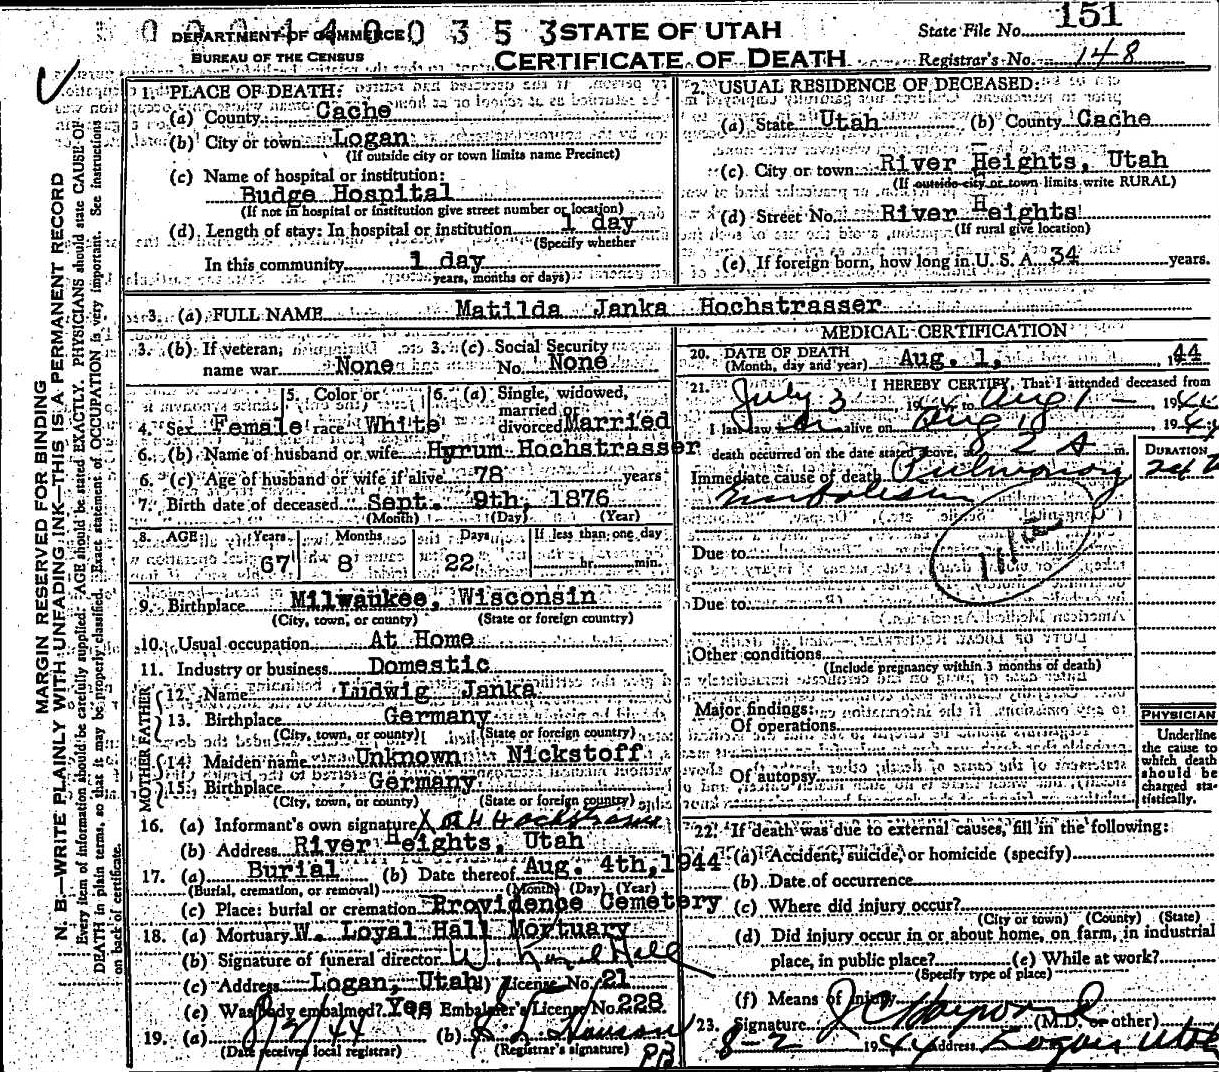 0001400353
DEPARTMENT OF COMMERCE
BUREAU OF THE CENSUS
STATE OF UTAH
CERTIFICATE OF DEATH
State File No. 151
Registrar's No. 148
MARGIN RESERVED FOR BINDING
N. B.—WRITE PLAINLY WITH UNFADING INK—THIS IS A PERMANENT RECORD
Every item of information should be carefully supplied. AGE should be stated EXACTLY. PHYSICIANS should state CAUSE OF
DEATH in plain terms, so that it may be properly classified. Exact statement of OCCUPATION is very important. See instructions
on back of certificate.
1. PLACE OF DEATH:
(a) County Cache
(b) City or town Logan
(If outside city or town limits name Precinct)
(c) Name of hospital or institution:
Budge Hospital
(If not in hospital or institution give street number or location)
(d) Length of stay: In hospital or institution 1 day
(Specify whether
In this community 1 day
years, months or days)
2. USUAL RESIDENCE OF DECEASED:
(a) State Utah (b) County Cache
(c) City or town River Heights, Utah
(If outside city or town limits write RURAL)
(d) Street No. River Heights
(If rural give location)
(e) If foreign born, how long in U. S. A. 34 years.
3. (a) FULL NAME Matilda Janka Hochstrasser
3. (b) If veteran, name war None
3. (c) Social Security No. None
4. Sex Female
5. Color or race White
6. (a) Single, widowed, married or divorced Married
6. (b) Name of husband or wife Hyrum Hochstrasser
6. (c) Age of husband or wife if alive 78 years
7. Birth date of deceased Sept. 9th, 1876
(Month) (Day) (Year)
8. AGE Years Months Days If less than one day
67 8 22 hr. min.
9. Birthplace Milwaukee, Wisconsin
(City, town, or county) (State or foreign country)
10. Usual occupation At Home
11. Industry or business Domestic
FATHER
12. Name Ludwig Janka
13. Birthplace Germany
(City, town, or county) (State or foreign country)
MOTHER
14. Maiden name Unknown Nickstoff
15. Birthplace Germany
(City, town, or county) (State or foreign country)
16. (a) Informant's own signature X A H Hochstrasser
(b) Address River Heights, Utah
17. (a) Burial (b) Date thereof Aug. 4th, 1944
(Burial, cremation, or removal) (Month) (Day) (Year)
(c) Place: burial or cremation Providence Cemetery
18. (a) Mortuary W. Loyal Hall Mortuary
(b) Signature of funeral director W. Loyal Hall
(c) Address Logan, Utah License No. 21
(e) Was body embalmed? Yes (f) Embalmer's License No. 228
19. (a) 8/2/44 (b)
(Date received local registrar) (Registrar's signature)
PB
MEDICAL CERTIFICATION
20. DATE OF DEATH Aug. 1, 1944
(Month, day and year)
21. I HEREBY CERTIFY, That I attended deceased from
July 3 1944 to Aug 1 1944
I last saw alive on Aug 1 1944
death occurred on the date stated above, at 8 2 A m.
DURATION
Immediate cause of death Pulmonary
Embolism
Due to
Due to
Other conditions
(Include pregnancy within 3 months of death)
Major findings:
Of operations
Of autopsy
PHYSICIAN
Underline
the cause to
which death
should be
charged sta-
tistically.
22. If death was due to external causes, fill in the following:
(a) Accident, suicide, or homicide (specify)
(b) Date of occurrence
(c) Where did injury occur?
(City or town) (County) (State)
(d) Did injury occur in or about home, on farm, in industrial
place, in public place? (e) While at work?
(Specify type of place)
(f) Means of injury
23. Signature J C Hayward (M.D. or other)
8-2 1944 Address Logan Utah